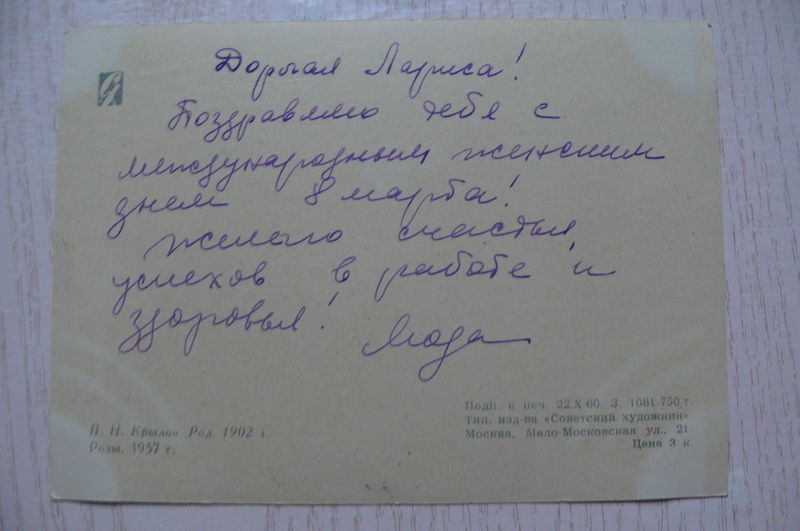 Дорогая Лариса!
Поздравляю тебя с
международным женским
днем 8 марта!
Желаю счастья
успехов в работе и
здоровья!
П. Н. Крылов. Род. 1902 г.
Розы. 1957 г.
Подп. к печ. 22.X 60. З. 1081 750 т
тип. изд-ва «Советский художник»
Москва, Мало-Московская ул., 21
Цена 3 к.